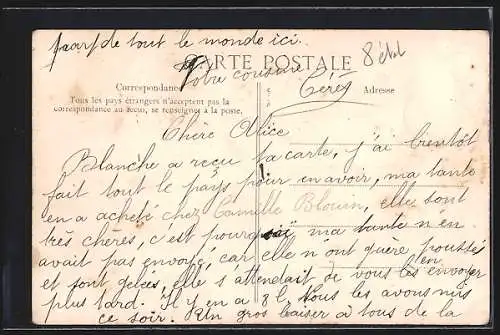 paarf de tout le monde ici.
CARTE POSTALE
8 étbl
Votre cousine
Cérés
Correspondance
Adresse
Tous les pays étrangers n'acceptent pas la
correspondance au recto, se renseigner à la poste.
Chère Alice
Blanche a reçu ta carte, j'ai bientôt
fait tout le pays pour en avoir, ma tante
en a acheté chez Camille Blouin, elle sont
très chères, c'est pourquoi ma tante n'en
avait pas envoyé, car elle n'ont guère poussé
et sont gelées, elle s'attendait de vous les envoyer
plus tard. Il y en a 8 l. Nous les avons mis en
ce soir. Un gros baiser à tous de la